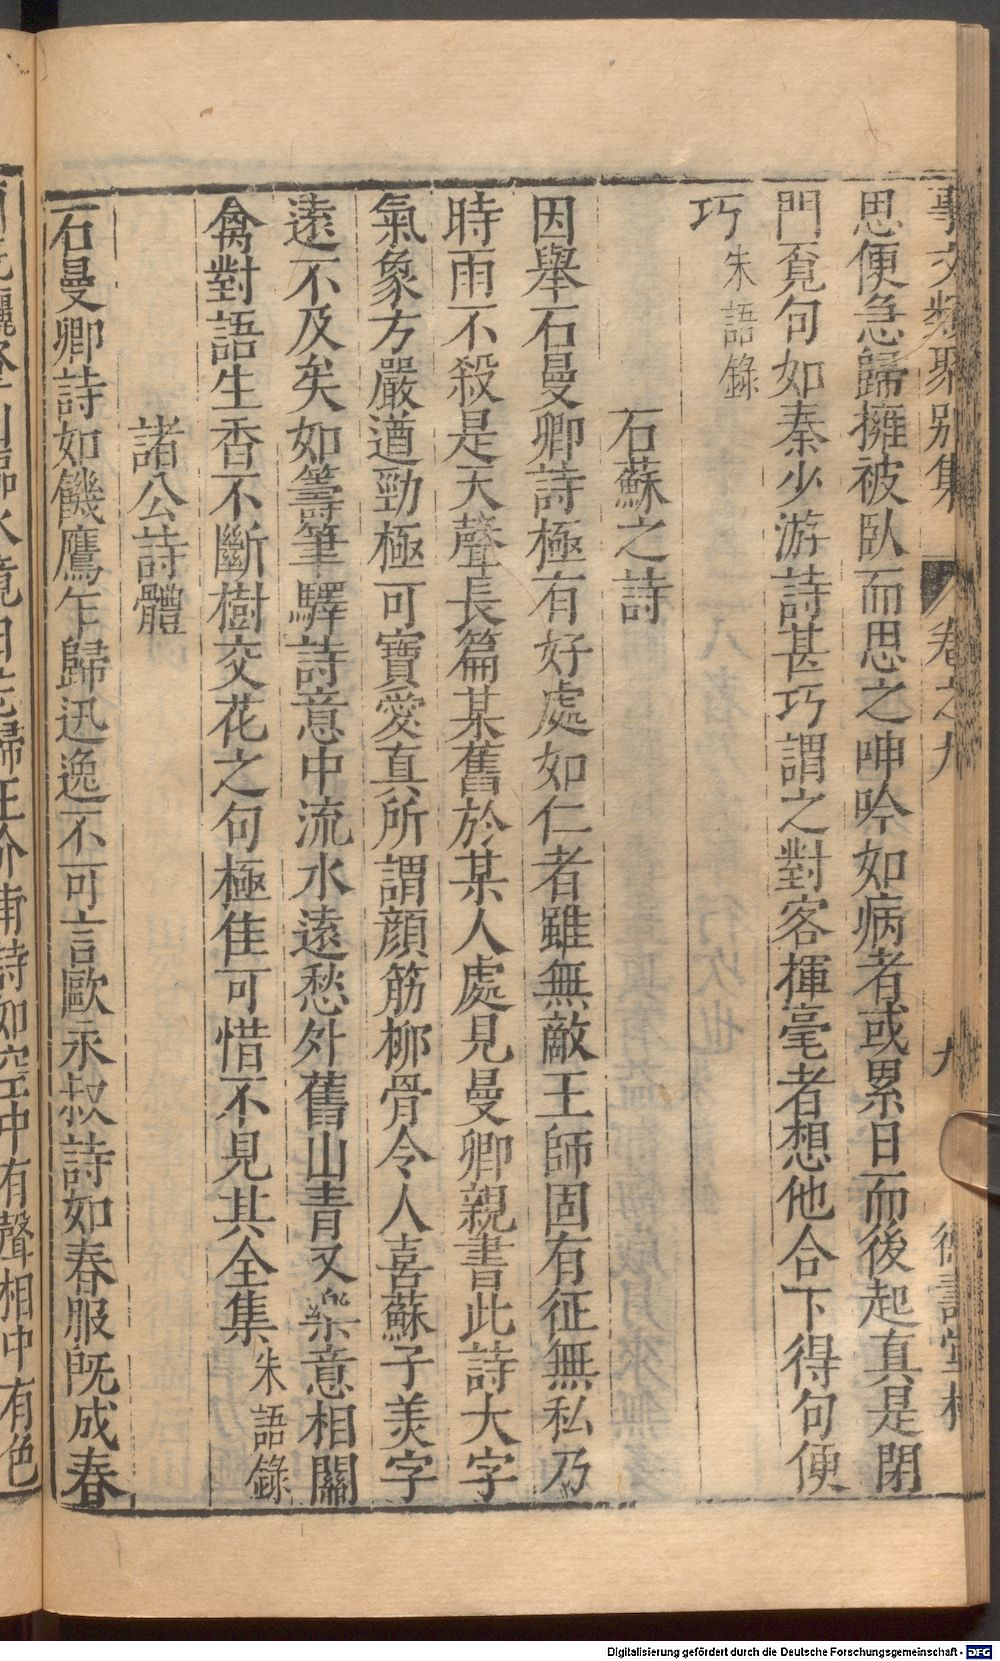 事文類聚別集 卷之九 九
思便急歸擁被臥而思之呻吟如病者或累日而後起真是閉
門覔句如秦少游詩甚巧謂之對客揮毫者想他合下得句便
巧朱語錄
石蘇之詩
因舉石曼卿詩極有好處如仁者雖無敵王師固有征無私乃
時雨不殺是天聲長篇某舊於某人處見曼卿親書此詩大字
氣象方嚴遒勁極可寶愛真所謂顏筋柳骨令人喜蘇子美字
遠不及矣如籌筆驛詩意中流水遠愁外舊山青又樂意相關
禽對語生香不斷樹交花之句極佳可惜不見其全集朱語錄
諸公詩體
石曼卿詩如饑鷹乍歸迅逸不可言歐永叔詩如春服既成春
水鏡 花歸王介甫詩如空中有聲相中有色
Digitalisierung gefördert durch die Deutsche Forschungsgemeinschaft - DFG